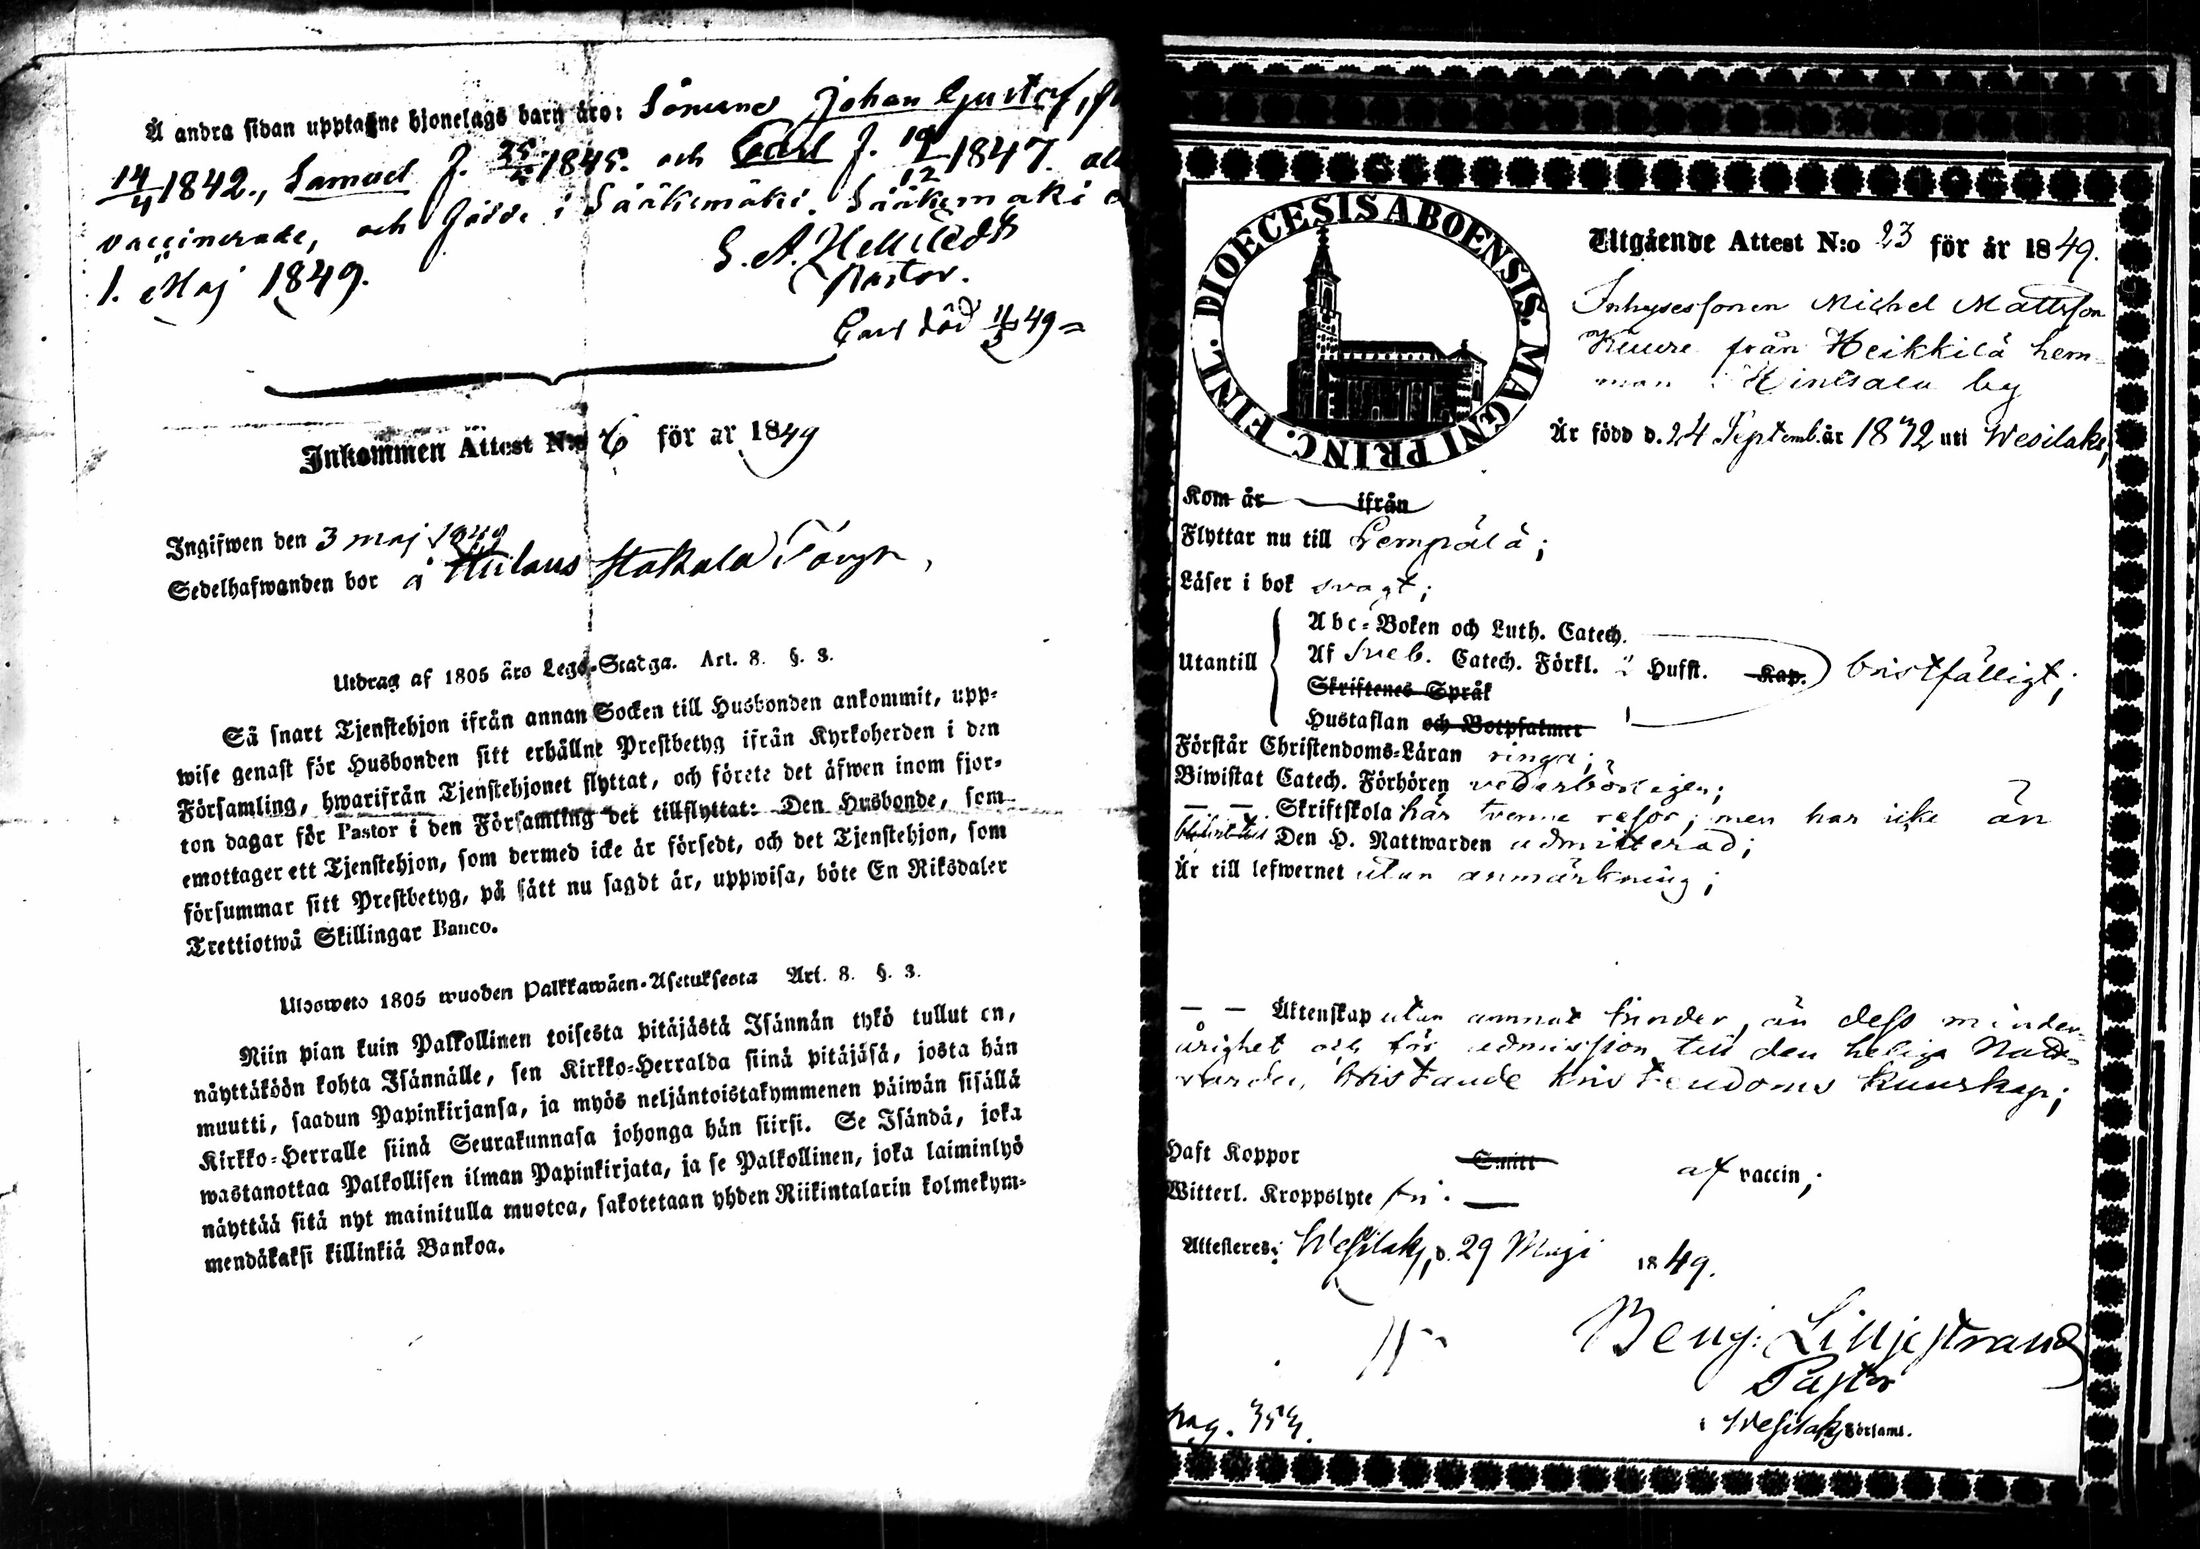 Å andra sidan upptagne hjonelags barn äro: Sönerne Johan Gustaf, f
14/4 1842., Samuel f. 25/5 1845. och Carl f. 19/12 1847. all
vaccinerade, och födde i Sääksmäki. Sääksmäki d
1. Maj 1849.
G. A. Hellstedt
Pastor.
Carl död 11/5 49
Inkommen Attest N:o 6 för år 1849
Ingifwen den 3 maj 1849
Sedelhafwanden bor å Stakala Torp,
Utdrag af 1805 års Lego-Stadga. Art. 8. §. 3.
Så snart Tjenstehjon ifrån annan Socken till Husbonden ankommit, upp-
wise genast för Husbonden sitt erhållne Prestbetyg ifrån Kyrkoherden i den
Församling, hwarifrån Tjenstehjonet flyttat, och förete det äfwen inom fjor-
ton dagar för Pastor i den Församling det tillflyttat: Den Husbonde, som
emottager ett Tjenstehjon, som dermed icke är försedt, och det Tjenstehjon, som
försummar sitt Prestbetyg, på sätt nu sagdt är, uppwisa, böte En Riksdaler
Trettiotwå Skillingar Banco.
Ulosweto 1805 wuoden Palkkawäen-Asetuksesta Art. 8. §. 3.
Niin pian kuin Palkollinen toisesta pitäjästä Isännän tykö tullut on,
näyttäköön kohta Isännälle, sen Kirkko-Herralda siinä pitäjäsä, josta hän
muutti, saadun Papinkirjansa, ja myös neljäntoistakymmenen päiwän sisällä
Kirkko-Herralle siinä Seurakunnasa johonga hän siirsi. Se Isändä, joka
wastanottaa Palkollisen ilman Papinkirjata, ja se Palkollinen, joka laiminlyö
näyttää sitä nyt mainitulla muotoa, sakotetaan yhden Riikintalarin kolmekym-
mendäkaksi killinkiä Bankoa.
DIOECESIS ABOENSIS. MAGNI PRINC. FINL.
Utgående Attest N:o 23 för år 1849.
Inhysessonen Michel Mattsson
Kuure från Heikkilä hem-
man i Hinsala by
Är född d. 24 Septemb. år 1832 uti Wesilaks,
Kom år ifrån
Flyttar nu till Lempälä;
Läser i bok svagt;
Utantill
Abc-Boken och Luth. Catech.
Af Sveb. Catech. Förkl. Hufst. Kap. bristfälligt;
Skriftenes Språk
Hustaflan och Botpsalmer
Förstår Christendoms-Läran ringa;
Biwistat Catech. Förhören vederbörligen;
— — Skriftskola här tvenne resor; men har icke än
Den H. Nattwarden admitterad;
Är till lefwernet utan anmärkning;
— — Äktenskap utan annat hinder, än dess minder-
årighet och för admission till den heliga Natt-
varden bristande kristendoms kunskap;
Haft Koppor Smitt af vaccin;
Witterl. Kroppslyte fri. —
Attesteres; Wesilaks, d. 29 Maji 1849.
Benj: Liljestrand
Pastor
i Wesilaks Församl.
pag. 353.